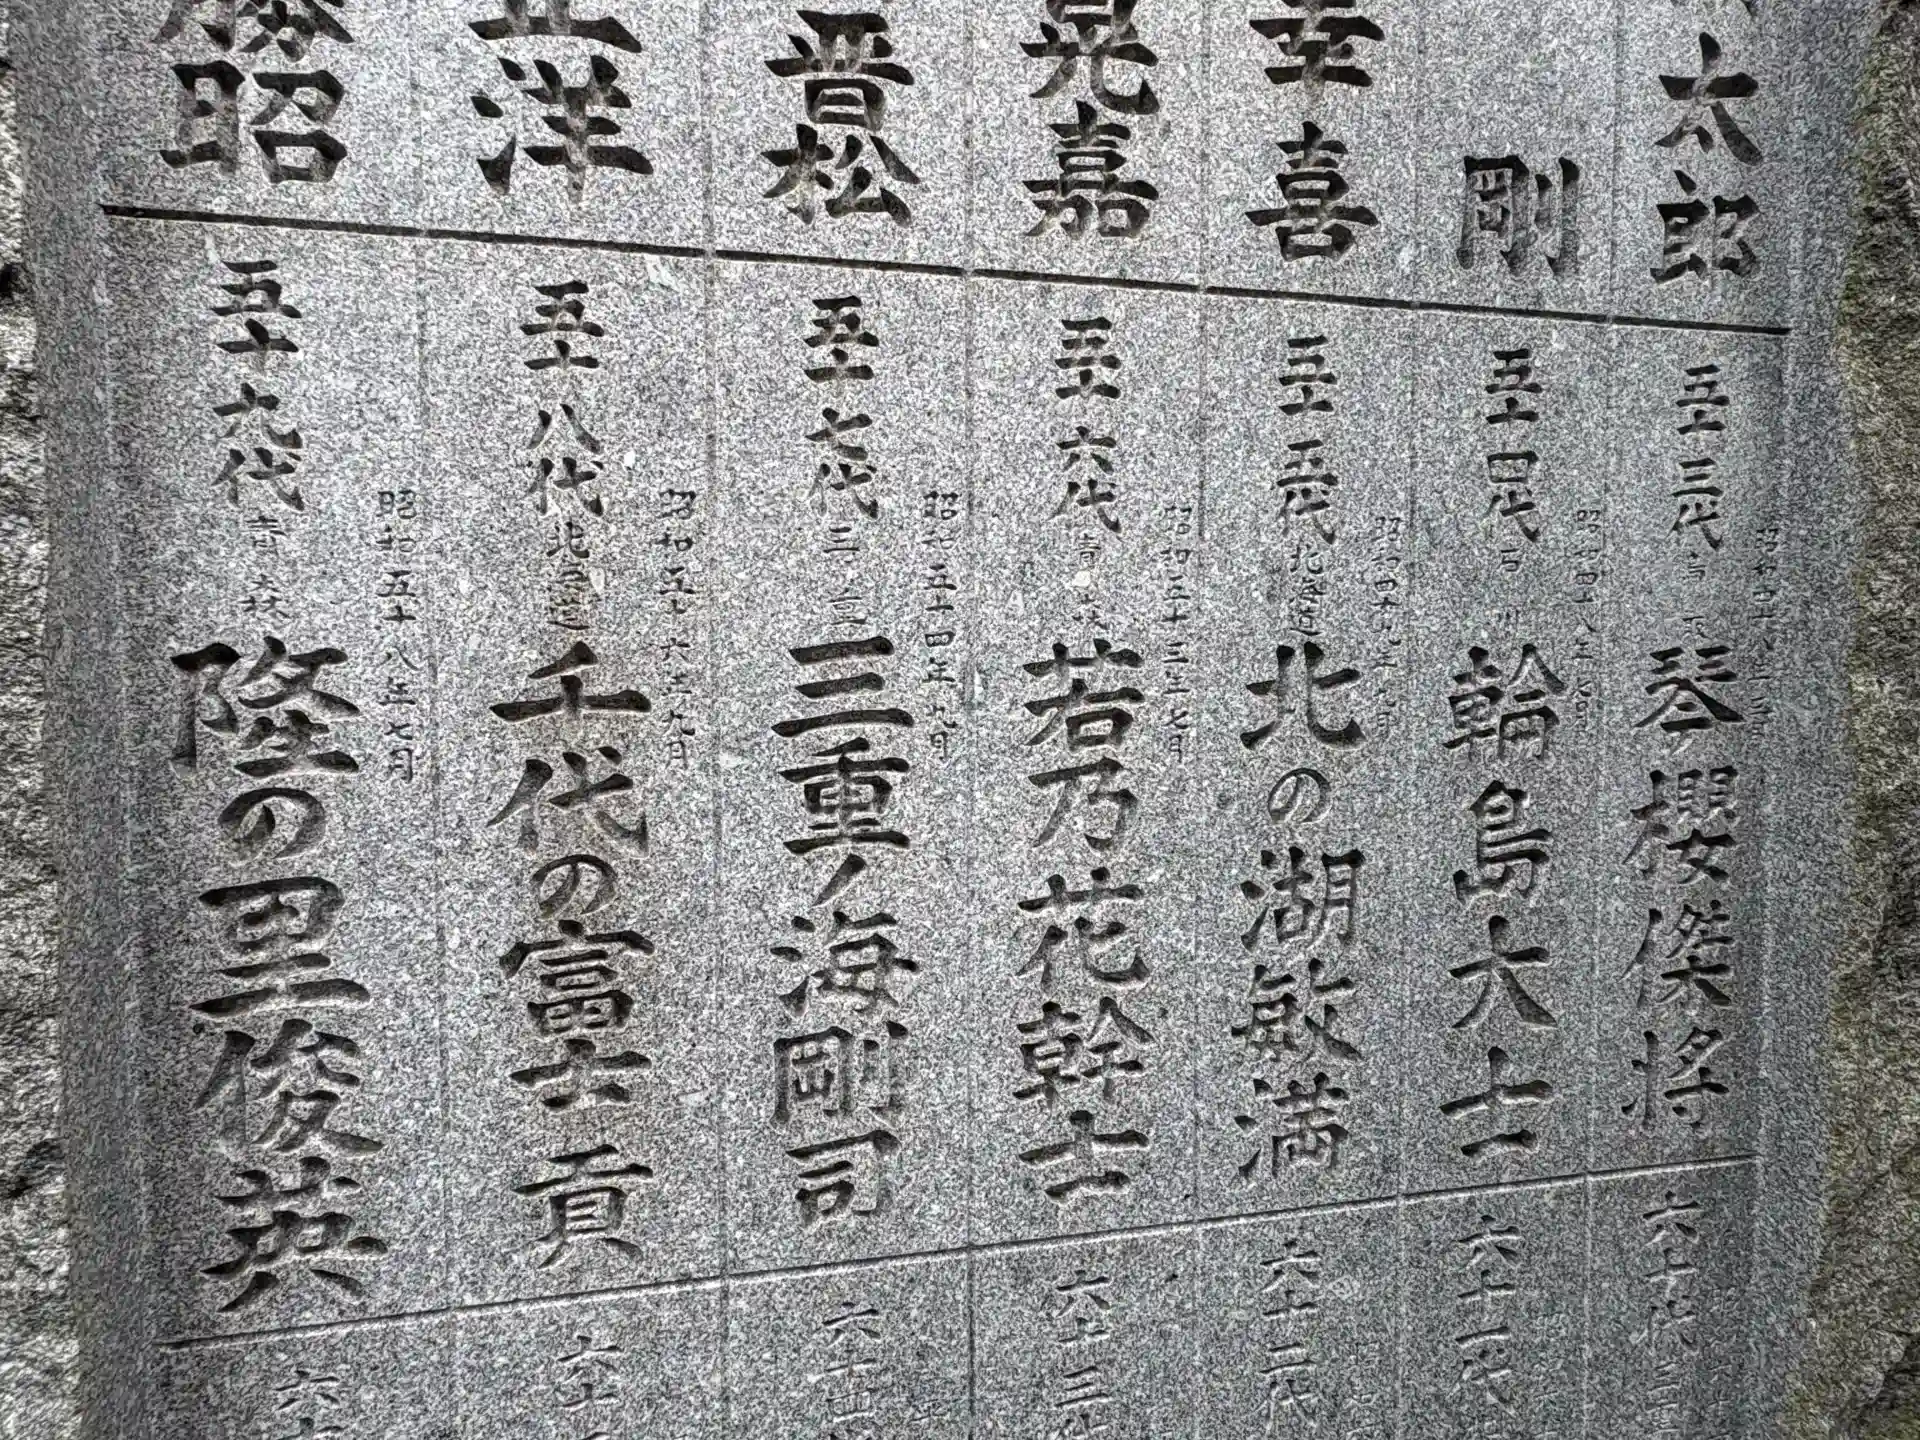 太郎
剛
幸喜
晃嘉
晋松
洋
勝昭
五十三代
琴櫻傑將
昭和四十八年
五十四代 石川
輪島大士
昭和四十九年九月
五十五代 北海道
北の湖敏満
昭和五十三年七月
五十六代 青森
若乃花幹士
昭和五十四年九月
五十七代 三重
三重ノ海剛司
昭和五十六年九月
五十八代 北海道
千代の富士貢
昭和五十八年七月
五十九代 青森
隆の里俊英
六十代
六十一代
六十二代
六十三代
六十四
六十
六十